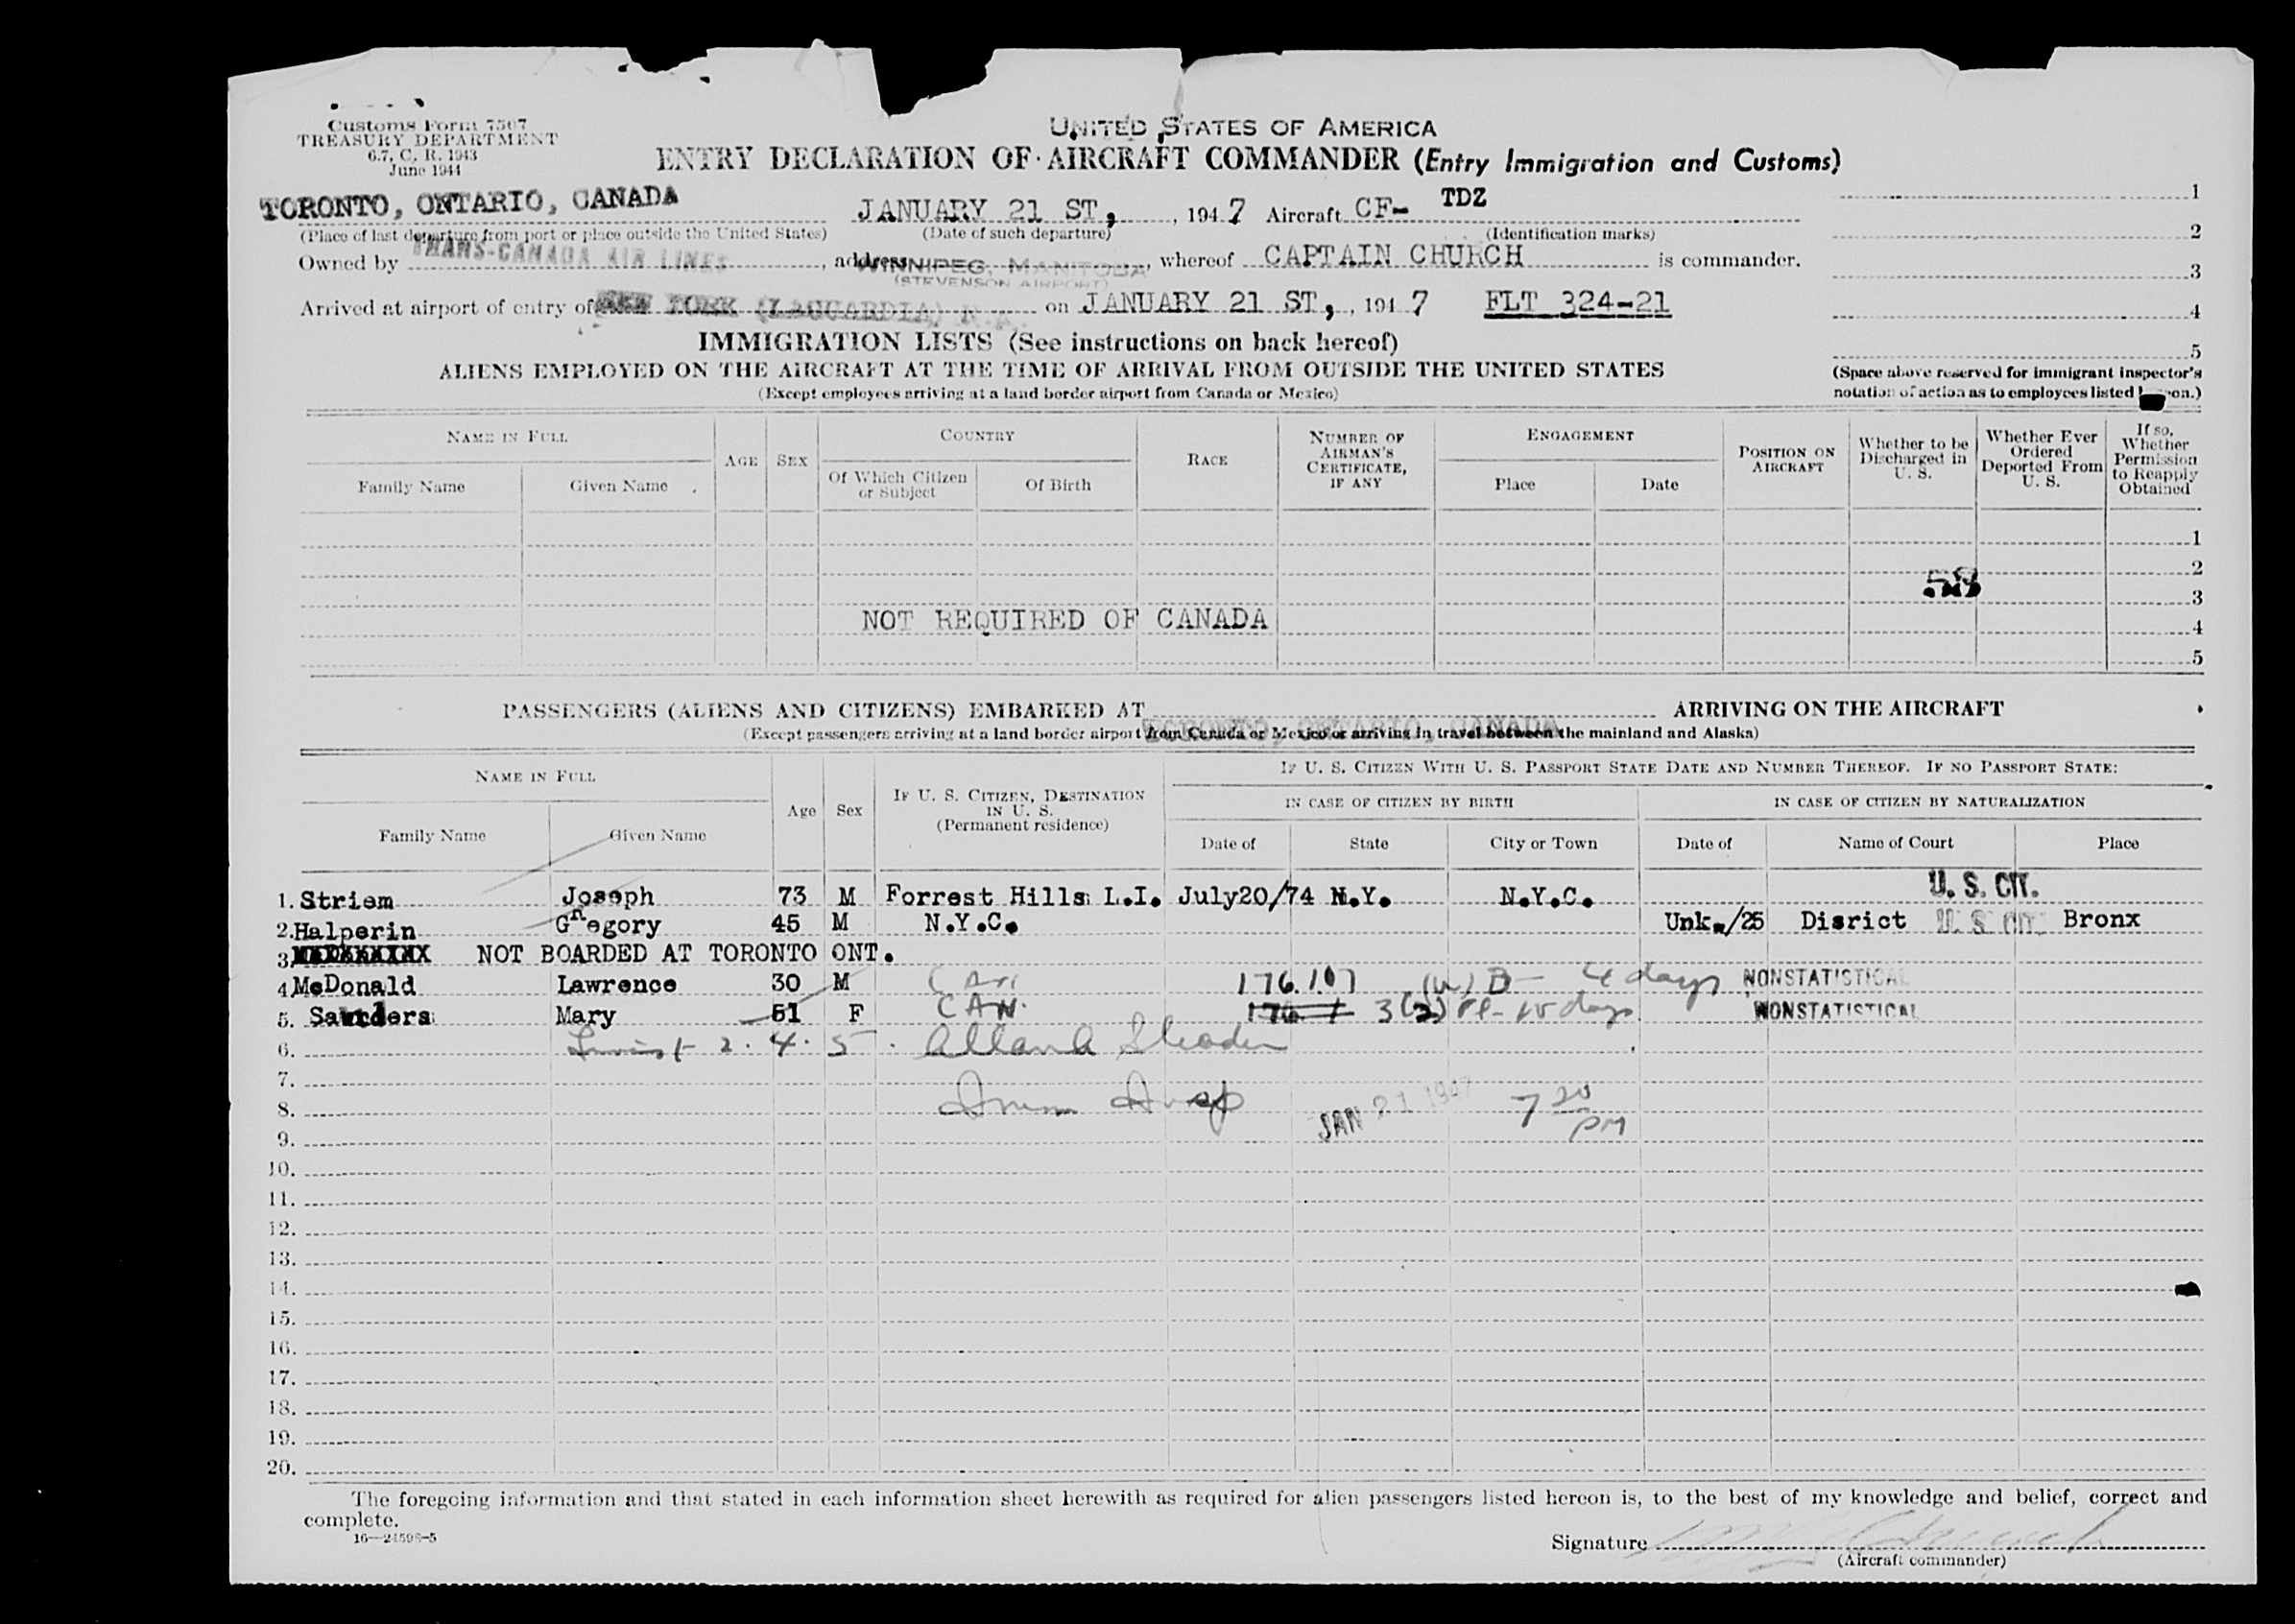 Customs Form 7507
TREASURY DEPARTMENT
6.7, C. R. 1943
June 1944
UNITED STATES OF AMERICA
ENTRY DECLARATION OF AIRCRAFT COMMANDER (Entry Immigration and Customs)
TORONTO, ONTARIO, CANADA JANUARY 21 ST, , 194 7 Aircraft CF- TDZ 1
(Place of last departure from port or place outside the United States) (Date of such departure) (Identification marks) 2
Owned by TRANS-CANADA AIR LINES , address WINNIPEG, MANITOBA , whereof CAPTAIN CHURCH is commander. 3
(STEVENSON AIRPORT)
Arrived at airport of entry of NEW YORK (LAGUARDIA) on JANUARY 21 ST, , 194 7 FLT 324-21 4
IMMIGRATION LISTS (See instructions on back hereof) 5
ALIENS EMPLOYED ON THE AIRCRAFT AT THE TIME OF ARRIVAL FROM OUTSIDE THE UNITED STATES (Space above reserved for immigrant inspector's
(Except employees arriving at a land border airport from Canada or Mexico) notation of action as to employees listed
NAME IN FULL AGE SEX COUNTRY RACE NUMBER OF AIRMAN'S CERTIFICATE, IF ANY ENGAGEMENT POSITION ON AIRCRAFT Whether to be Discharged in U. S. Whether Ever Ordered Deported From U. S. If so, Whether Permission to Reapply Obtained
Family Name Given Name Of Which Citizen or Subject Of Birth Place Date
1
2
3
NOT REQUIRED OF CANADA 4
5
PASSENGERS (ALIENS AND CITIZENS) EMBARKED AT TORONTO, ONTARIO, CANADA ARRIVING ON THE AIRCRAFT
(Except passengers arriving at a land border airport from Canada or Mexico or arriving in travel between the mainland and Alaska)
NAME IN FULL Age Sex IF U. S. CITIZEN, DESTINATION IN U. S. (Permanent residence) IF U. S. CITIZEN WITH U. S. PASSPORT STATE DATE AND NUMBER THEREOF. IF NO PASSPORT STATE:
IN CASE OF CITIZEN BY BIRTH IN CASE OF CITIZEN BY NATURALIZATION
Family Name Given Name Date of State City or Town Date of Name of Court Place
1. Striem Joseph 73 M Forrest Hills L.I. July20/74 N.Y. N.Y.C. U. S. CIT.
2. Halperin Gregory 45 M N.Y.C. Unk./25 Disrict U. S. CIT. Bronx
3. NOT BOARDED AT TORONTO ONT.
4 McDonald Lawrence 30 M CAN 176.107 B- 4 days NONSTATISTICAL
5. Saunders Mary 51 F CAN. 3(2) Pl- 15 days NONSTATISTICAL
6. 2. 4. 5.
7.
8. JAN 21 1947 7 20 PM
9.
10.
11.
12.
13.
14.
15.
16.
17.
18.
19.
20.
The foregoing information and that stated in each information sheet herewith as required for alien passengers listed hereon is, to the best of my knowledge and belief, correct and
complete.
16—24598-5
Signature Church
(Aircraft commander)